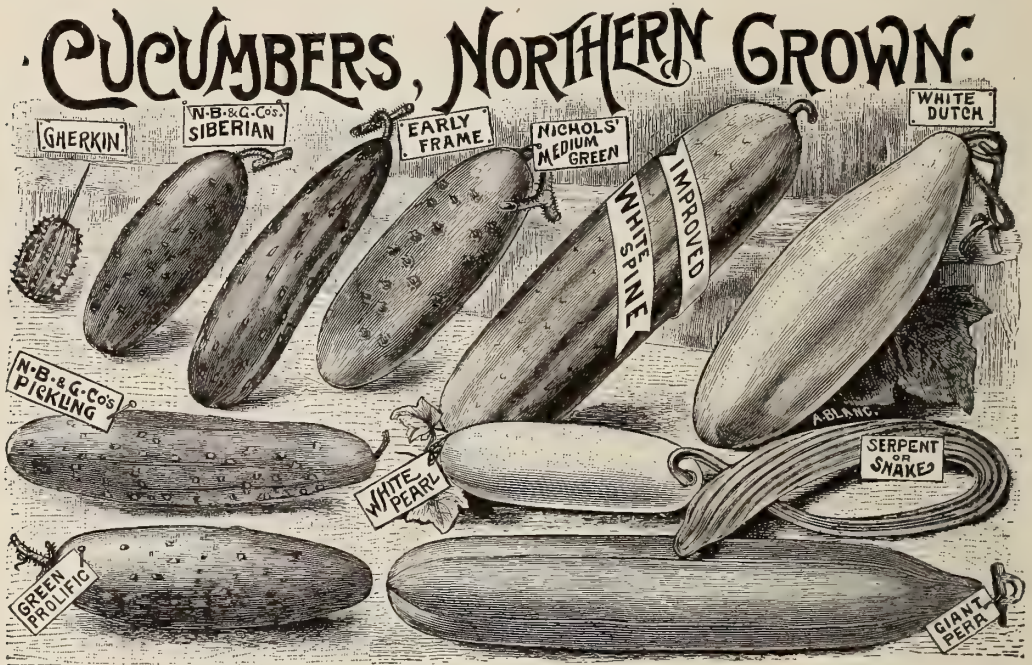 CUCUMBERS, NORTHERN GROWN.
GHERKIN.
N.B.&G.Co's.
SIBERIAN
EARLY
FRAME.
NICHOLS'
MEDIUM
GREEN
IMPROVED
WHITE SPINE
WHITE
DUTCH
N.B.&G.Co's
PICKLING
WHITE
PEARL
A.BLANC.
SERPENT
OR
SNAKE
GREEN
PROLIFIC
GIANT
PERA